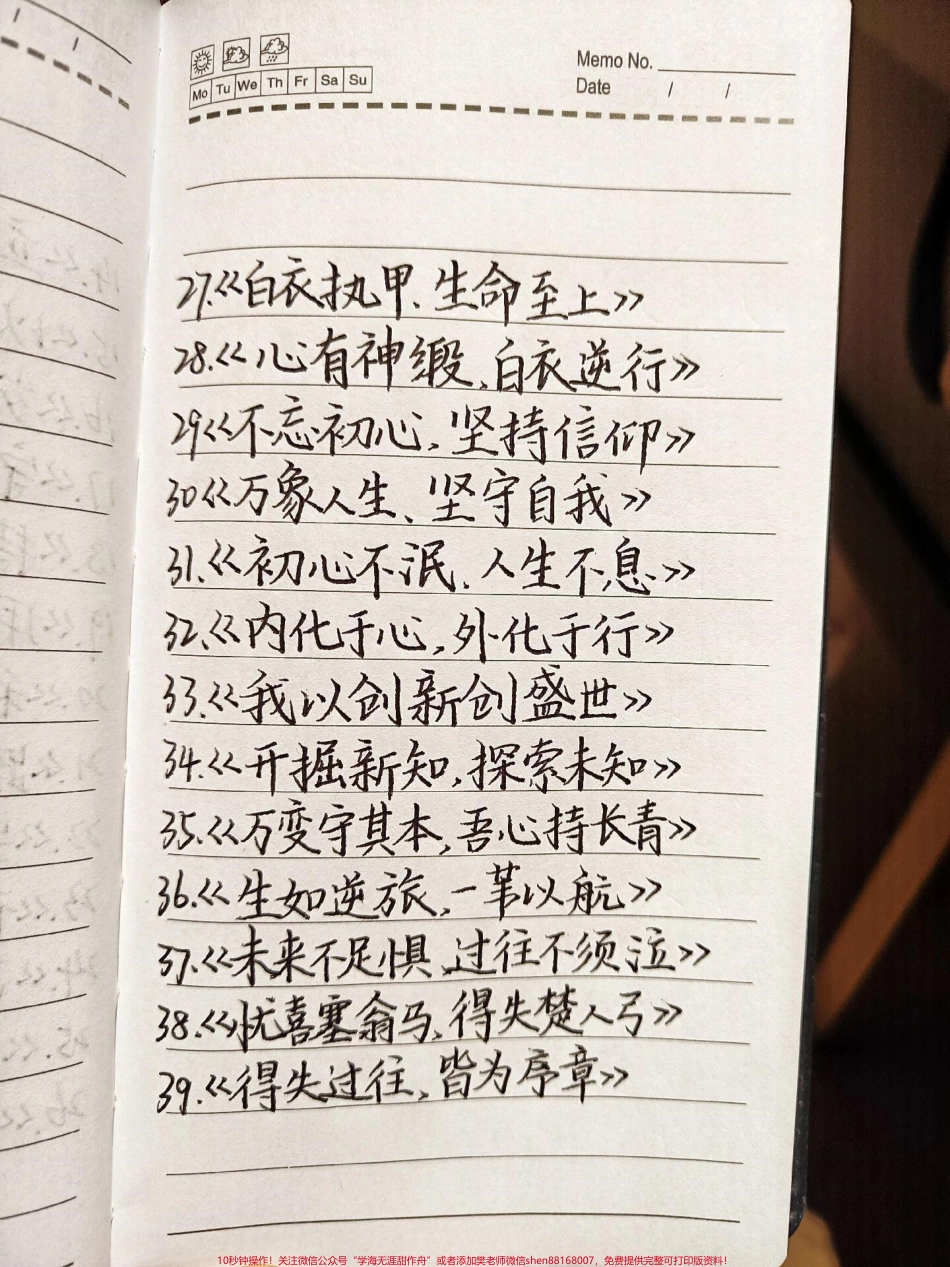 Memo No.
Mo Tu We Th Fr Sa Su
Date / /
27.《白衣执甲、生命至上》
28.《心有神缎、白衣逆行》
29《不忘初心,坚持信仰》
30《万象人生、坚守自我》
31.《初心不泯、人生不息》
32.《内化于心,外化于行》
33.《我以创新创盛世》
34.《开掘新知,探索未知》
35.《万变守其本,吾心持长青》
36.《生如逆旅,一苇以航》
37.《未来不足惧,过往不须泣》
38.《忧喜塞翁马、得失楚人弓》
39.《得失过往、皆为序章》
10秒钟操作!关注微信公众号“学海无涯甜作舟”或者添加樊老师微信shen88168007,免费提供完整可打印版资料!